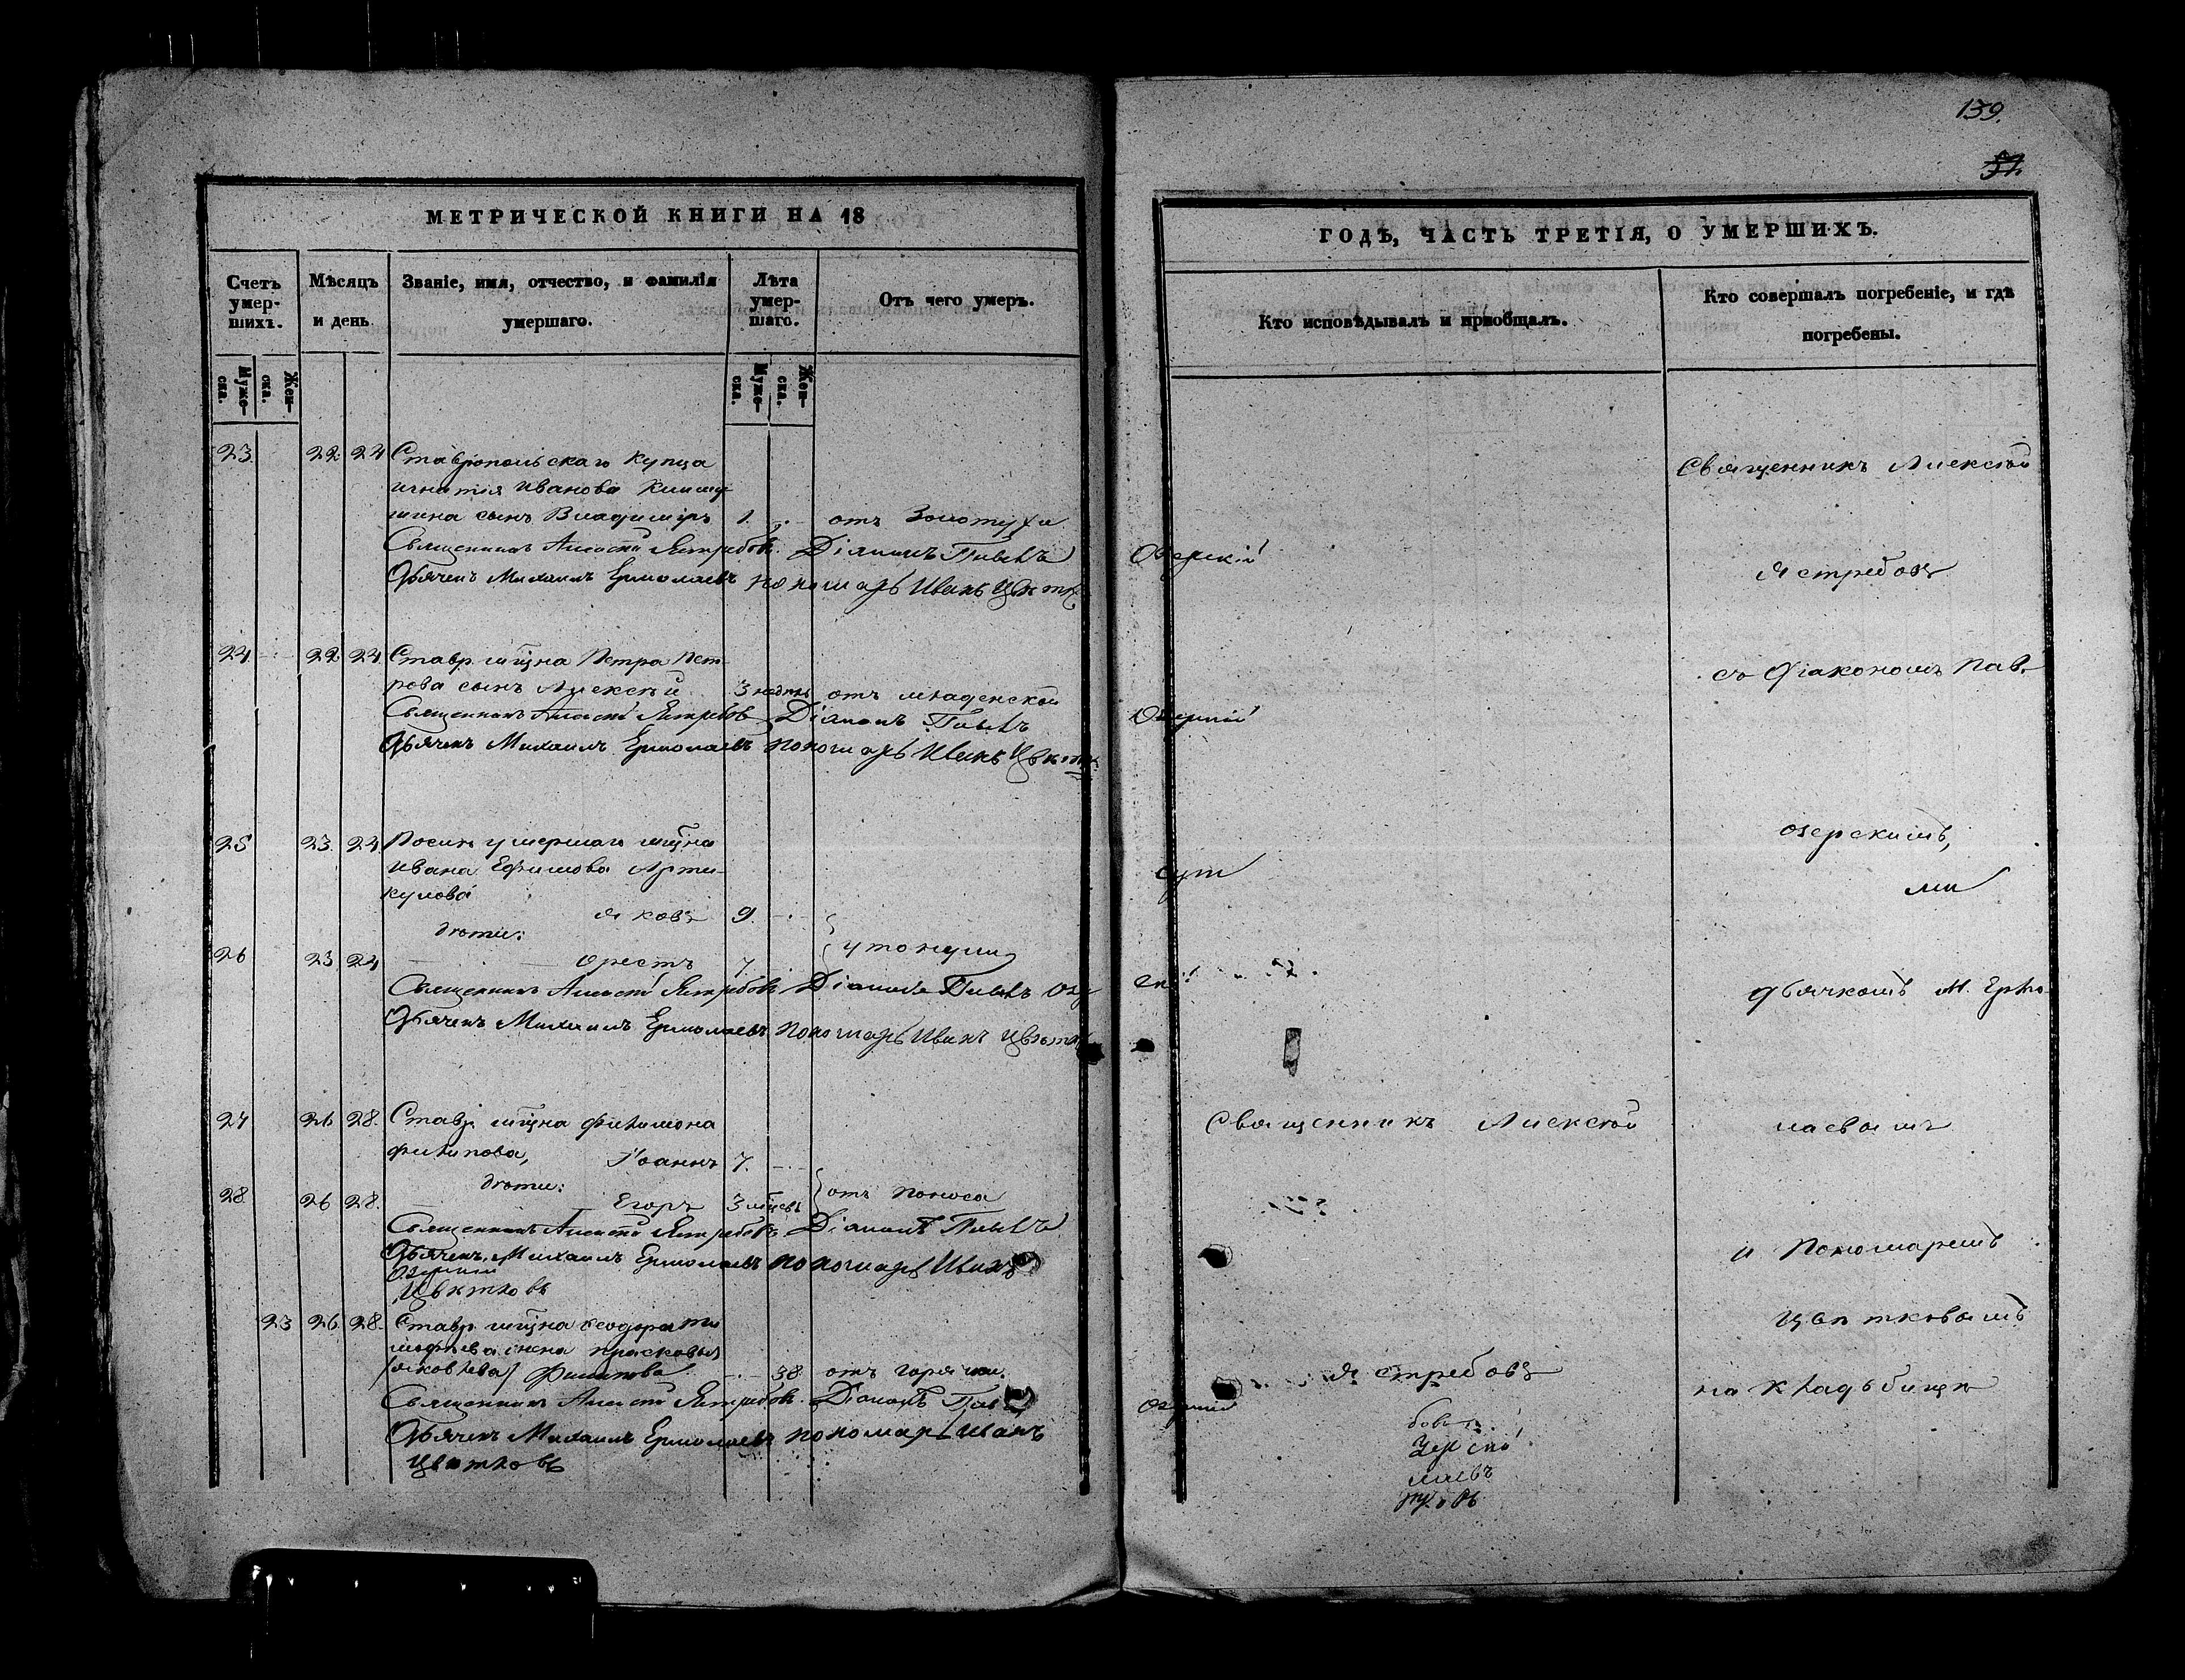 139.
37.
МЕТРИЧЕСКОЙ КНИГИ НА 18
Счетъ умер-шихъ.
Мѣсяцъ и день
Званіе, имя, отчество, и фамилія умершаго.
Лѣта умер-шаго.
Отъ чего умеръ.
Муже-ска.
Жен-ска.
Муже-ска.
Жен-ска.
23. 22 24 Ставропольскаго купца
Игнатія Иванова
сынъ Владиміръ 1. отъ Золотухи
Священникъ Алексѣй Ястребовъ. Діаконъ Павелъ
Дьячекъ Михаилъ Ермолаевъ пономарь Иванъ
24 22 24 Ставр. мѣщ̃на Петра Пет-
рова сынъ Алексѣй 3 недѣль отъ младенской
Священникъ Алексѣй Ястребов Діаконъ Павелъ
Дьячекъ Михаилъ Ермолаевъ пономарь Иванъ
25 23. 24 Послѣ умершаго мѣщ̃на
Ивана Ефимова Арти-
кулова
Яковъ 9.
дѣти:
26 23 24 Орестъ 7. утонули
Священникъ Алексѣй Ястребовъ Діаконъ Павелъ Озе
Дьячекъ Михаилъ Ермолаевъ пономарь Иванъ
27 26 28. Ставр. мѣщ̃на Филимона
Филипова, Іоаннъ 7.
дѣти:
28. 26 28. Егоръ 3 мѣ̃цевъ отъ поноса
Священникъ Алексѣй Ястребовъ Діаконъ Павелъ
Дьячекъ Михаилъ Ермолаевъ пономарь Иванъ
Озерскій
Цвѣтковъ
23 26 28. Ставр. мѣщ̃на Ѳеодора Ти
моѳѣева жена Прасковья
/Яковлева/ Филипова 38 отъ горячки.
Священникъ Алексѣй Ястребовъ. Діаконъ
Дьячекъ Михаилъ Ермолаевъ пономарь Иванъ
Цвѣтковъ
ГОДЪ, ЧАСТЬ ТРЕТІЯ, О УМЕРШИХЪ.
Кто исповѣдывалъ и пріобщалъ.
Кто совершалъ погребеніе, и гдѣ погребены.
Священникъ Алексѣй
Озерскій
Ястребовъ
съ Діакономъ Пав.
Озерскій
Озерскимъ,
Дьячкомъ М. Ермо-
Священникъ Алексѣй
лаевымъ
и Пономаремъ
Цвѣтковымъ
Ястребовъ
на кладьбищѣ
Озерскій